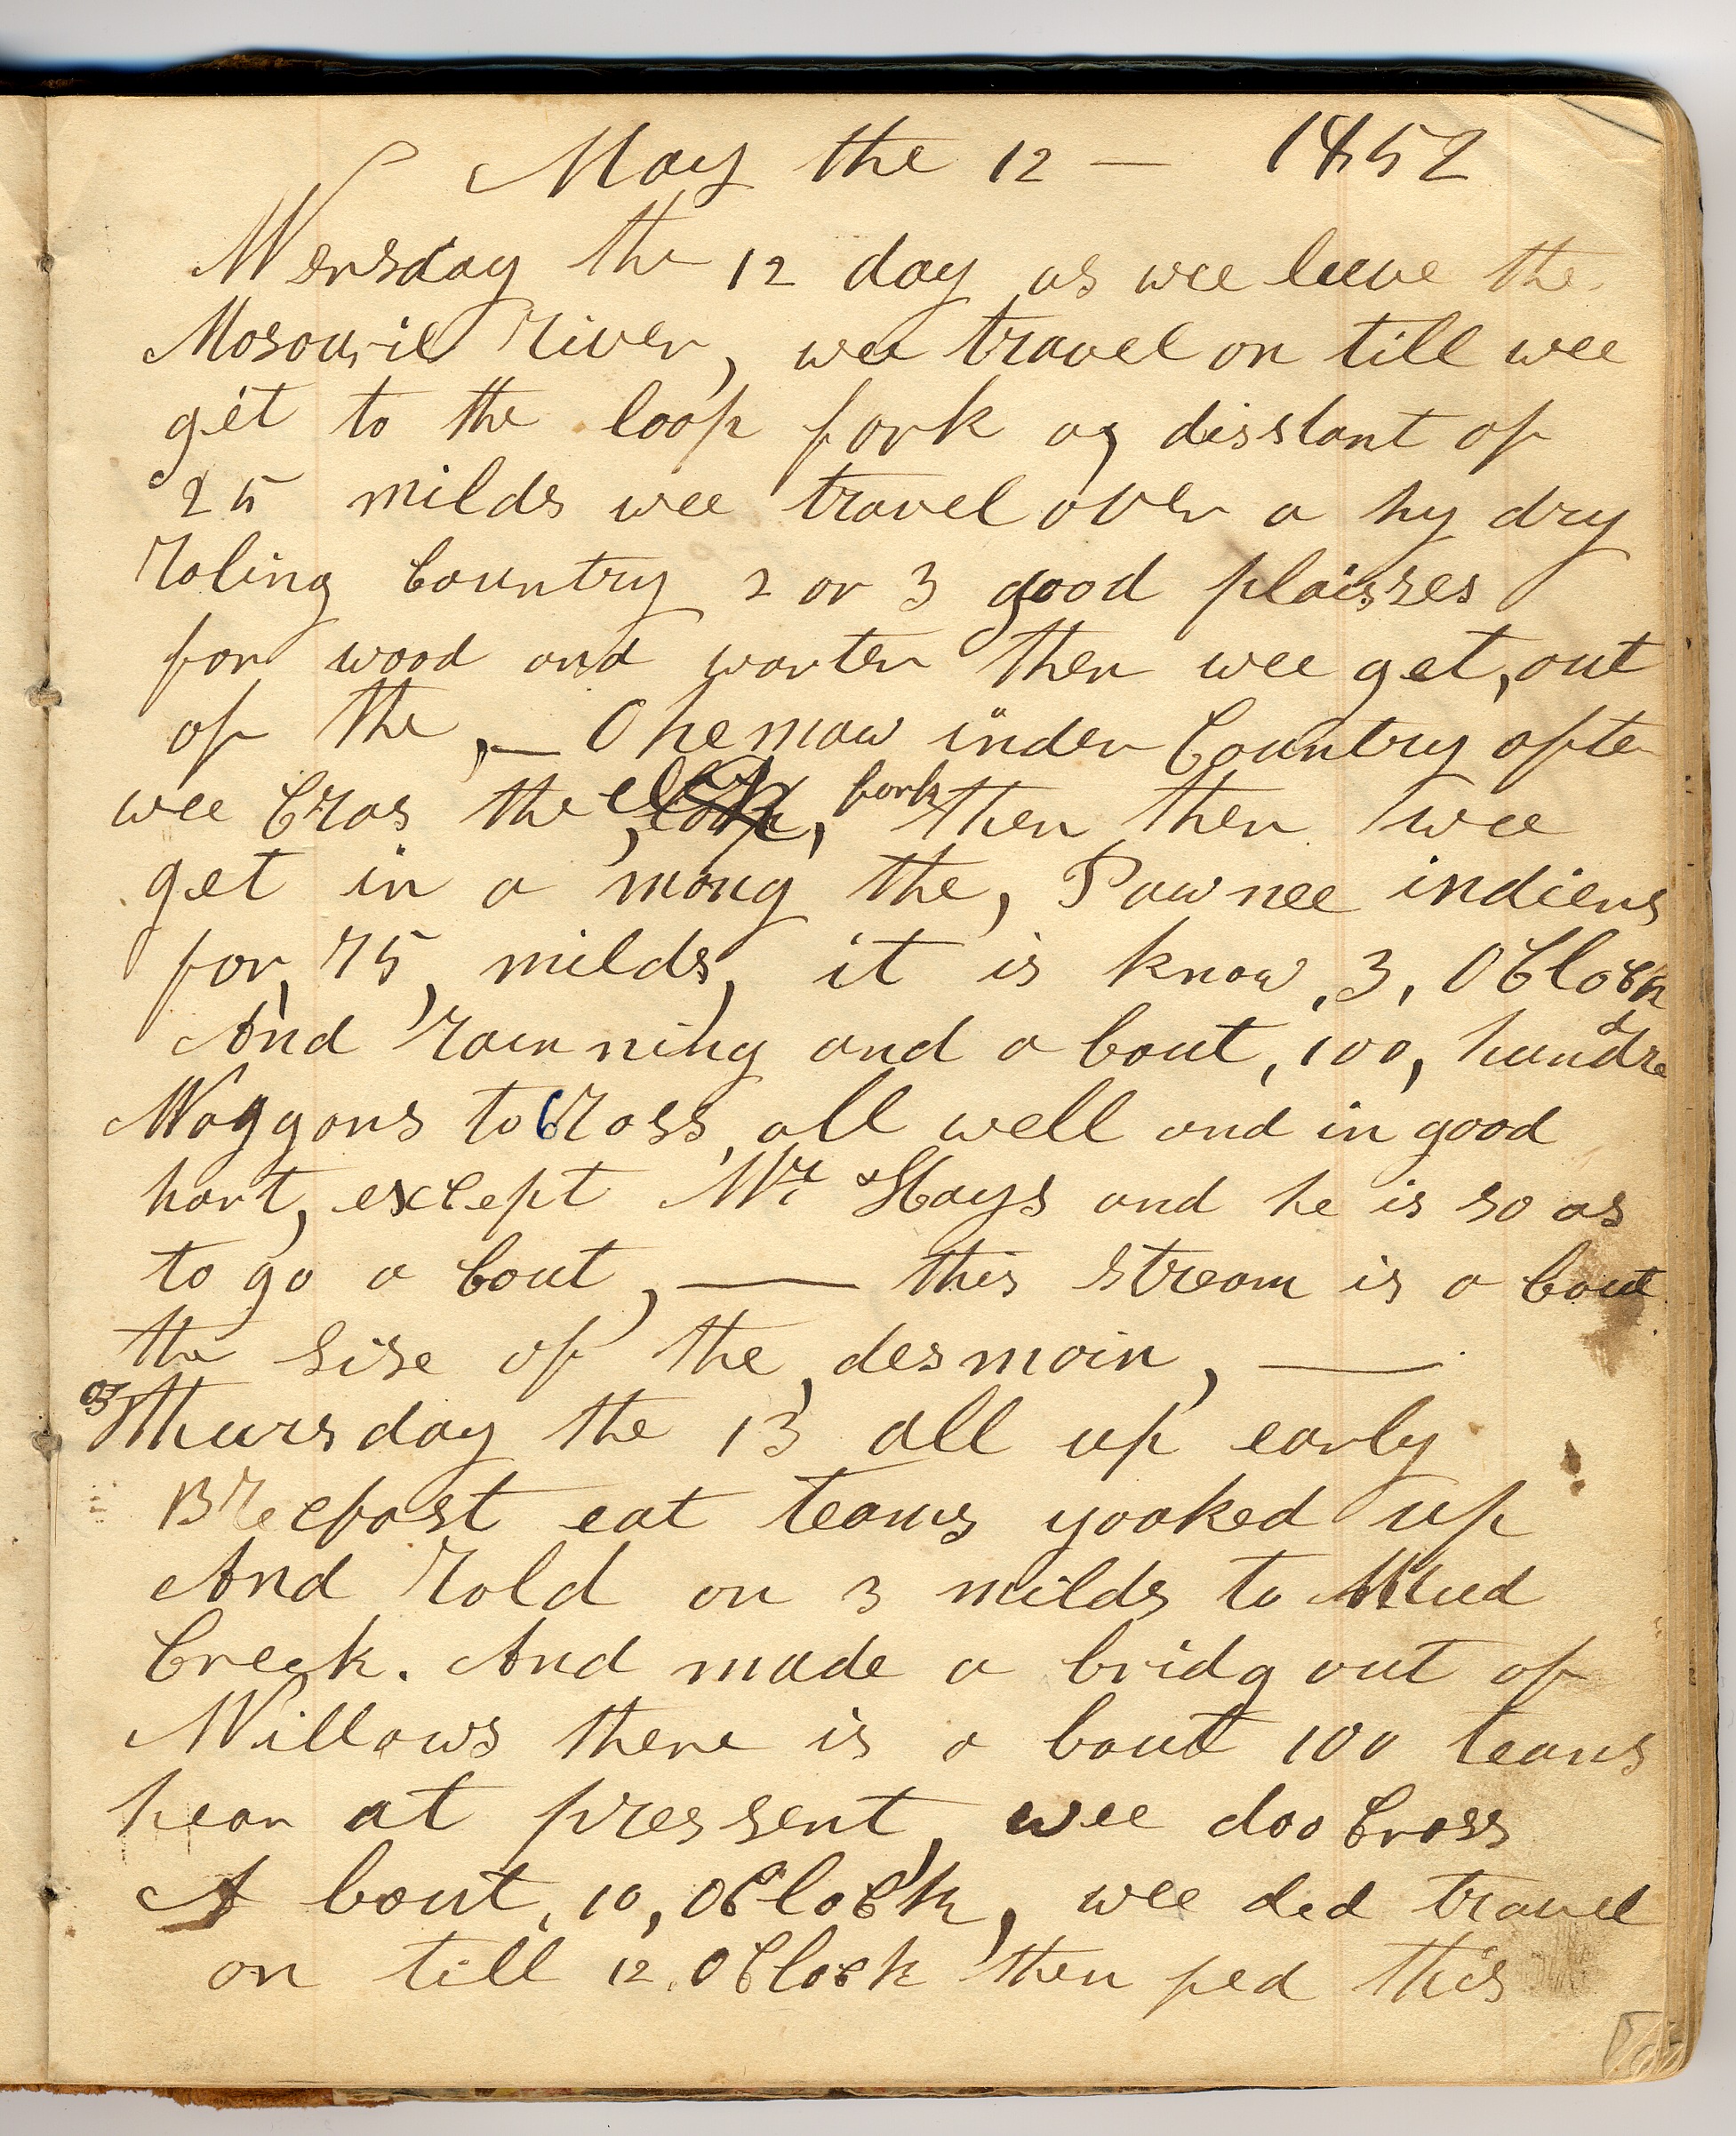 May the 12 — 1852
Wensday the 12 day as wee leeve the
Mosourie River, wee travel on till wee
get to the loop fork a, disstant of
25 milds wee travel over a hy dry
Roling Country 2 or 3 good plaisses
for wood and warter then wee get, out
of the ,— Ohemaw inden Country after
wee Cras the elk, fork then then wee
get in a mong the, Pawnee indiens
for, 75, milds, it is know, 3, OClock
And Rainning and a bout, 100, hundre
Waggons to Cross, all well and in good
hart, except Mr Hays and he is so as
to go a bout, — this stream is a bout
the sise of the, desmoin, —
Thursday the 13 all up early
Brecfast eat teams yooked up
And Rold on 3 milds to Mud
Creek. And made a bridg out of
Willows there is a bout 100 teams
hear at pressent, wee doo Cross
A bout, 10, OClock, wee ded travel
on till 12, OClock then fed this